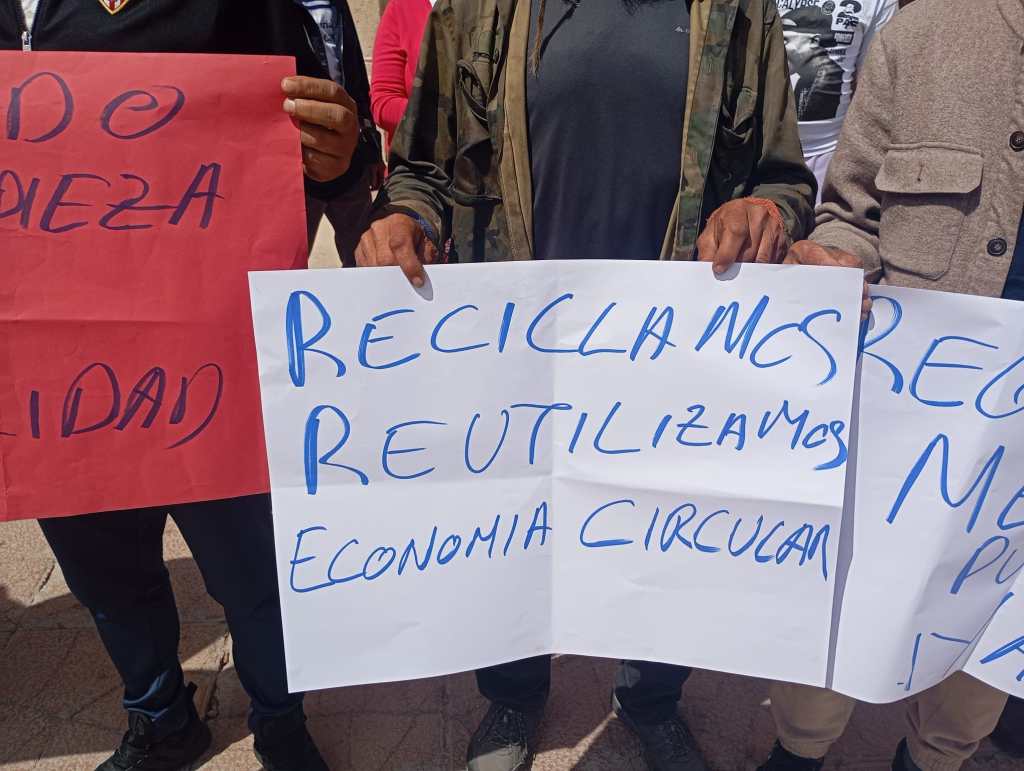 DO
PIEZA
LIDAD
RECICLAMOS
REUTILIZAMOS
ECONOMIA CIRCULAR
REC
ME
PU
CALYPSE